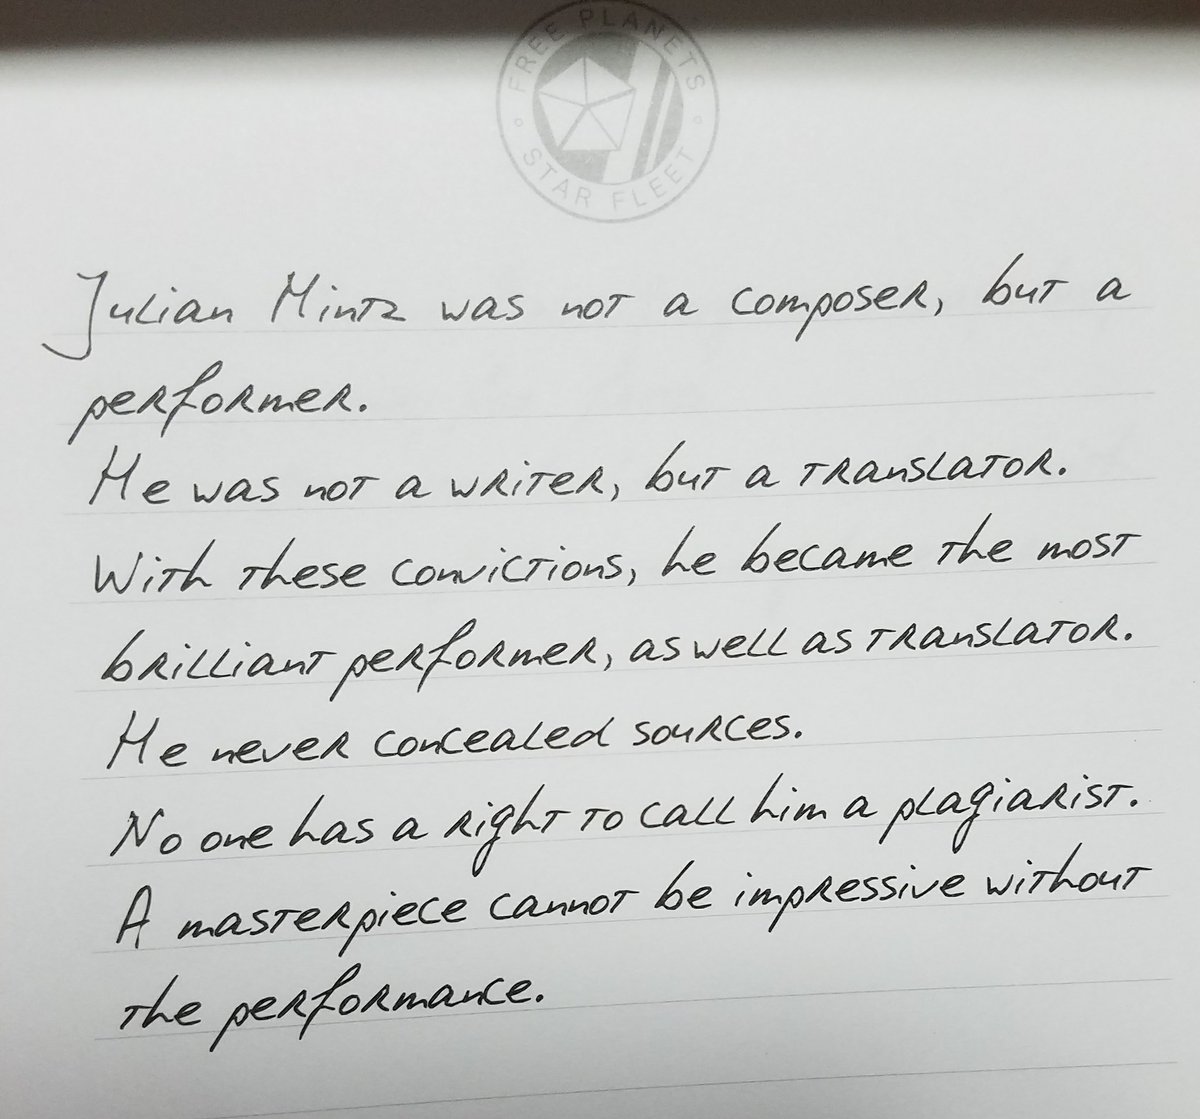 FREE PLANETS
STAR FLEET
Julian Mintz was not a composer, but a
performer.
He was not a writer, but a translator.
With these convictions, he became the most
brilliant performer, as well as translator.
He never concealed sources.
No one has a right to call him a plagiarist.
A masterpiece cannot be impressive without
the performance.